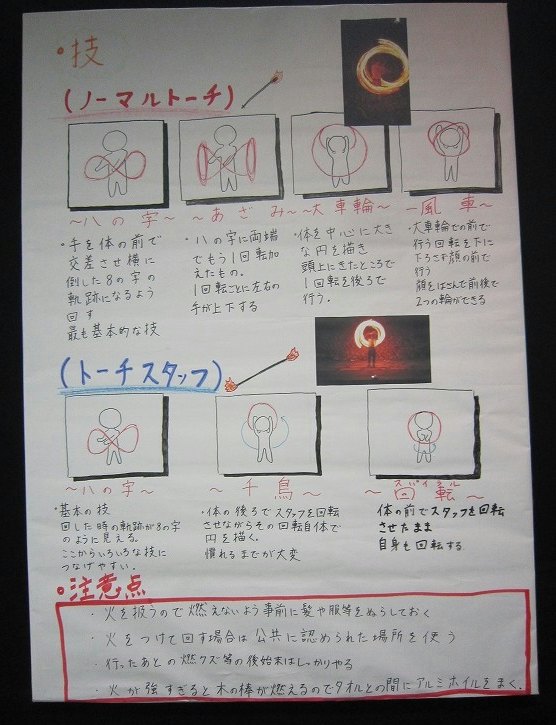 ・技
(ノーマルトーチ)
~八の字~
・手を体の前で
交差させ横に
倒した8の字の
軌跡になるよう
回す
最も基本的な技
~あざみ~
・八の字に両端
でもう1回転加
えたもの。
1回転ごとに左右の
手が上下する
~大車輪~
・体を中心に大き
な円を描き
頭上にきたところで
1回転を後ろで
行う。
~風車~
・大車輪での前で
行う回転を下に
下ろさず顔の前で
行う
顔をはさんで前後で
2つの輪ができる
(トーチスタッフ)
~八の字~
・基本の技
回した時の軌跡が8の字
のように見える。
ここからいろいろな技に
つなげやすい。
~千鳥~
・体の後ろでスタッフを回転
させながらその回転自体で
円を描く。
慣れるまでが大変
スパイラル
~回転~
体の前でスタッフを回転
させたまま
自身も回転する
・注意点
・火を扱うので燃えないよう事前に髪や服等をぬらしておく
・火をつけて回す場合は公共に認められた場所を使う
・行ったあとの燃クズ等の後始末はしっかりやる
・火が強すぎると木の棒が燃えるのでタオルとの間にアルミホイルをまく。